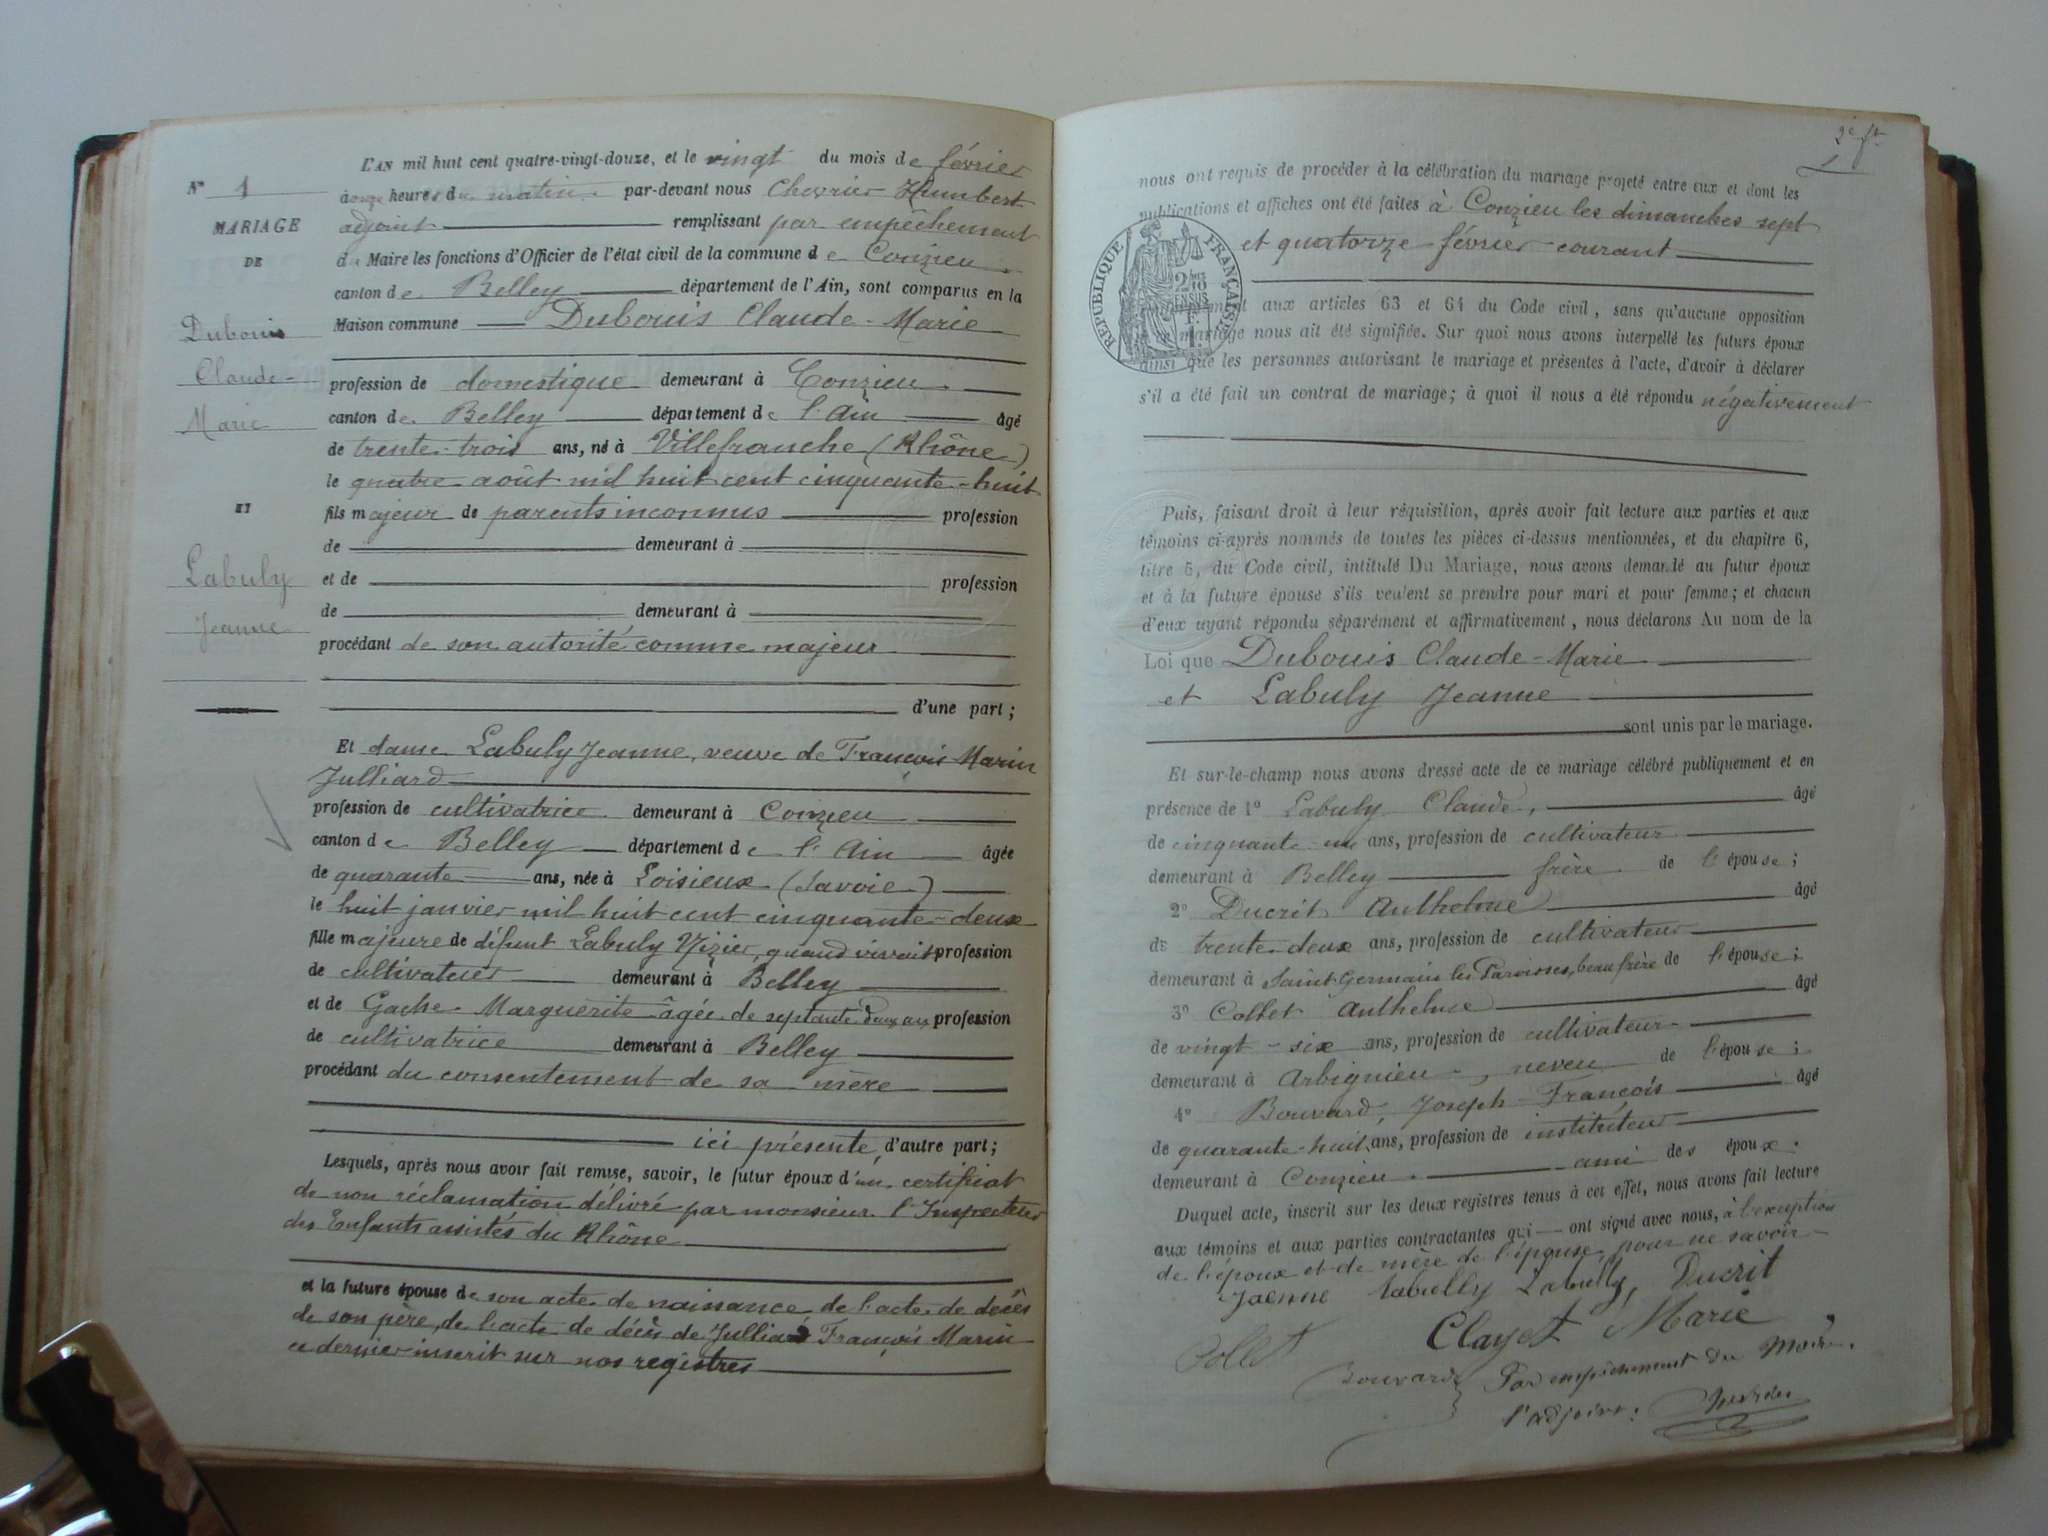 N° 1
MARIAGE
DE
Dubouis
Claude-
Marie
ET
Labuly
Jeanne
L'AN mil huit cent quatre-vingt-douze, et le vingt du mois de février
à onze heures du matin par-devant nous Chevrier Humbert
adjoint remplissant par empêchement
du Maire les fonctions d'Officier de l'état civil de la commune de Conzieu
canton de Belley département de l'Ain, sont comparus en la
Maison commune Dubouis Claude-Marie
profession de domestique demeurant à Conzieu
canton de Belley département de l'Ain âgé
de trente-trois ans, né à Villefranche (Rhône)
le quatre août mil huit cent cinquante-huit
fils majeur de parents inconnus profession
de demeurant à
et de profession
de demeurant à
procédant de son autorité comme majeur
d'une part;
Et dame Labuly Jeanne, veuve de François Marin
Julliard
profession de cultivatrice demeurant à Conzieu
canton de Belley département de l'Ain âgée
de quarante ans, née à Loisieux (Savoie)
le huit janvier mil huit cent cinquante-deux
fille majeure de défunt Labuly Nizier, quand vivait profession
de cultivateur demeurant à Belley
et de Gache Marguerite âgée de septante deux ans profession
de cultivatrice demeurant à Belley
procédant du consentement de sa mère
ici présente, d'autre part;
Lesquels, après nous avoir fait remise, savoir, le futur époux d'un certificat
de non réclamation délivré par monsieur l'Inspecteur
des Enfants assistés du Rhône
et la future épouse de son acte de naissance de l'acte de décès
de son père, de l'acte de décès de Julliard François Marin
ce dernier inscrit sur nos registres
2e ft
nous ont requis de procéder à la célébration du mariage projeté entre eux et dont les
publications et affiches ont été faites à Conzieu les dimanches sept
et quatorze février courant
RÉPUBLIQUE FRANÇAISE
2/10 EN SUS
1 F.
aux articles 63 et 64 du Code civil, sans qu'aucune opposition
mariage nous ait été signifiée. Sur quoi nous avons interpellé les futurs époux
ainsi que les personnes autorisant le mariage et présentes à l'acte, d'avoir à déclarer
s'il a été fait un contrat de mariage; à quoi il nous a été répondu négativement
Puis, faisant droit à leur réquisition, après avoir fait lecture aux parties et aux
témoins ci-après nommés de toutes les pièces ci-dessus mentionnées, et du chapitre 6,
titre 5, du Code civil, intitulé Du Mariage, nous avons demandé au futur époux
et à la future épouse s'ils veulent se prendre pour mari et pour femme; et chacun
d'eux ayant répondu séparément et affirmativement, nous déclarons Au nom de la
Loi que Dubouis Claude-Marie
et Labuly Jeanne
sont unis par le mariage.
Et sur-le-champ nous avons dressé acte de ce mariage célébré publiquement et en
présence de 1° Labuly Claude, âgé
de cinquante-un ans, profession de cultivateur
demeurant à Belley frère de l'épouse;
2° Ducrit Anthelme âgé
de trente-deux ans, profession de cultivateur
demeurant à Saint Germain les Paroisses, beau frère de l'épouse;
3° Collet Anthelme âgé
de vingt-six ans, profession de cultivateur
demeurant à Arbignieu, neveu de l'épouse;
4° Bouvard, Joseph François âgé
de quarante-huit ans, profession de instituteur
demeurant à Conzieu ami des époux.
Duquel acte, inscrit sur les deux registres tenus à cet effet, nous avons fait lecture
aux témoins et aux parties contractantes qui ont signé avec nous, à l'exception
de l'époux et de mère de l'épouse pour ne savoir
Jaenne Labully Labully, Ducrit
Collet Clayet Marie
Bouvard Par empêchement du Maire.
l'adjoint: Chevrier